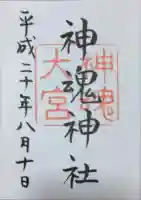 神魂神社
神魂
大宮
平成二十年八月十日